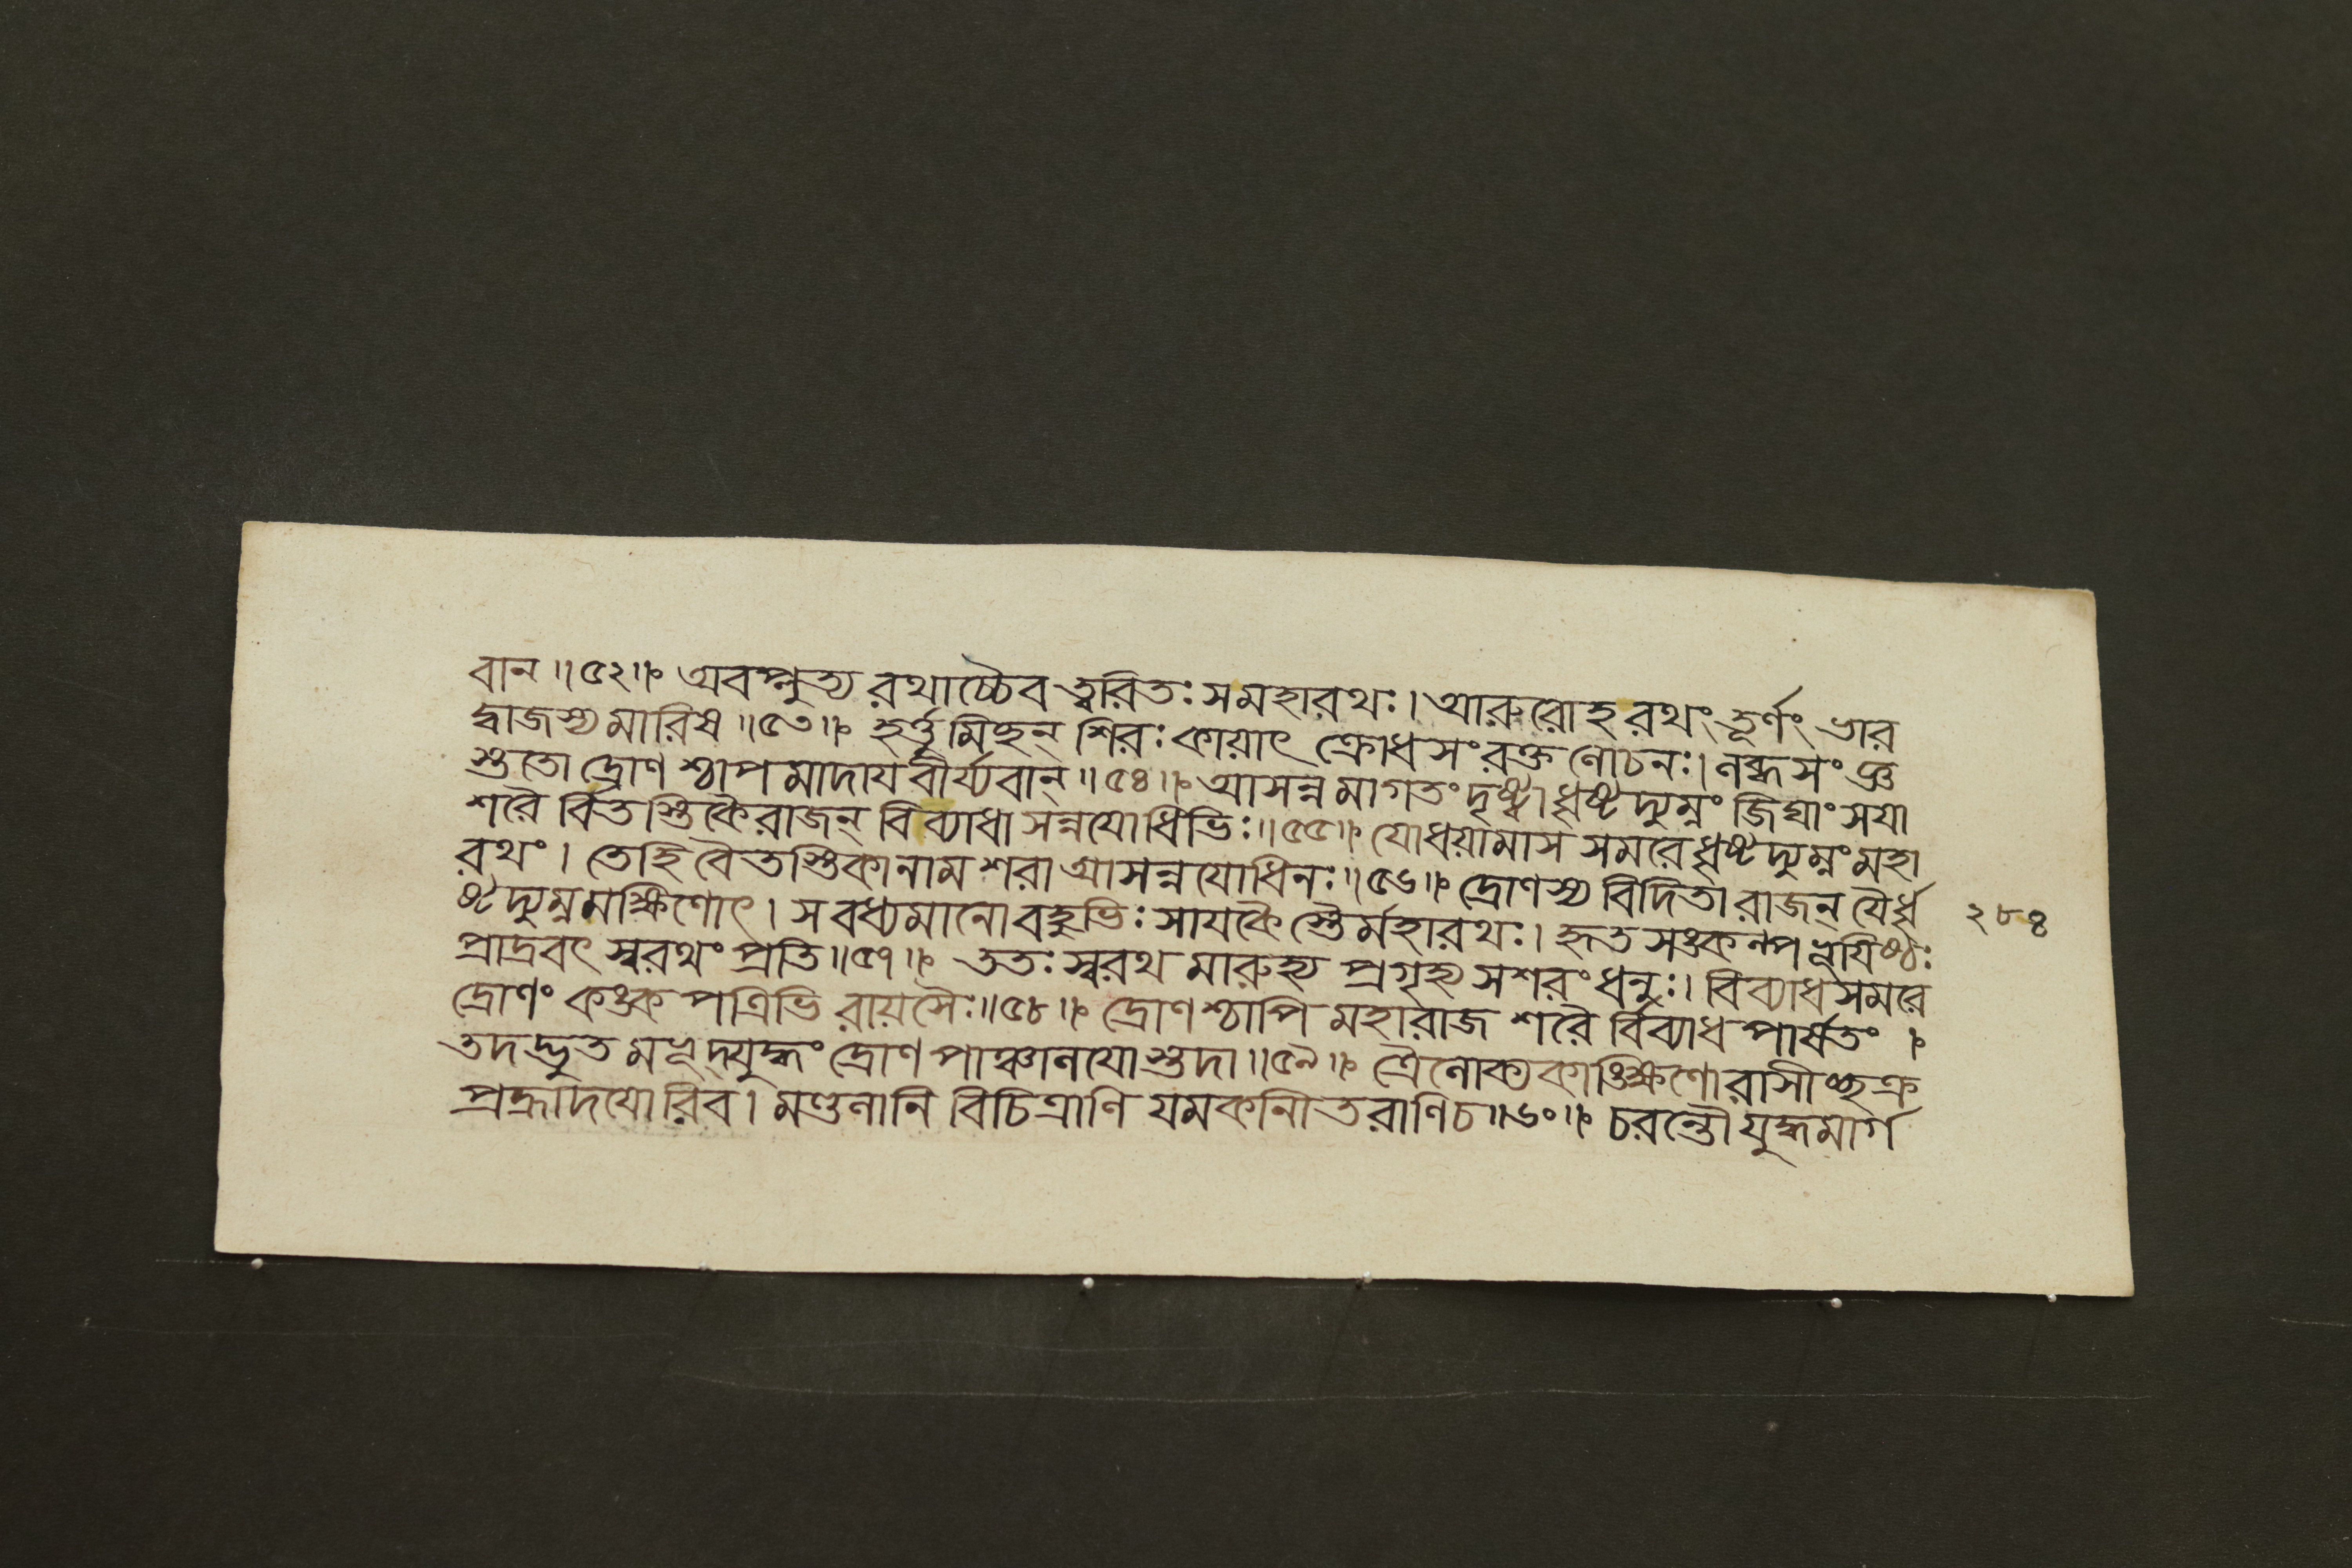 বান॥৫২॥ অবপ্লুত্য রথাচ্চৈব ত্বরিতঃ সমহারথঃ। আরুরোহ রথং তূর্ণং ভার
দ্বাজস্য মারিষ॥৫৩॥ হর্ত্তুমিচ্ছন্ শিরঃ কায়াৎ ক্রোধসংরক্ত লোচনঃ। লব্ধসংজ্ঞ
স্ততো দ্রোণ শ্চাপমাদায় বীর্য্যবান্॥৫৪॥ আসন্নমাগতং দৃষ্ট্বা ধৃষ্টদ্যুম্নং জিঘাংসযা
শরৈ র্বিতস্তিকৈ রাজন্ বিব্যাধাসন্নযোধিভিঃ॥৫৫॥ যোধয়ামাস সমরে ধৃষ্টদ্যুম্নং মহা
রথং। তেহি বৈতস্তিকানাম শরা আসন্নযোধিনঃ॥৫৬॥ দ্রোণস্য বিদিতা রাজন্ যৈর্ধৃ
ষ্টদ্যুম্নমক্ষিণোৎ। স বধ্যমানো বহুভিঃ সাযকৈ স্তৈর্মহারথঃ। হৃতসঙ্কল্পভূযিষ্ঠঃ
প্রাদ্রবৎ স্বরথং প্রতি॥৫৭॥ ততঃ স্বরথ মারুহ্য প্রগৃহ্য সশরং ধনুঃ। বিব্যাধ সমরে
দ্রোণং কঙ্ক পত্রিভি রায়সৈঃ॥৫৮॥ দ্রোণশ্চাপি মহারাজ শরৈ র্বিব্যাধ পার্ষতং।
তদদ্ভুত মভূদ্যুদ্ধং দ্রোণ পাঞ্চালযো স্তদা॥৫৯॥ ত্রৈলোক্যকাঙ্ক্ষিণোরাসীচ্ছক্র
প্রহ্রাদযোরিব। মণ্ডলানি বিচিত্রাণি যমকানীতরাণিচ॥৬০॥ চরন্তৌ যুদ্ধমার্গ
২৮৪